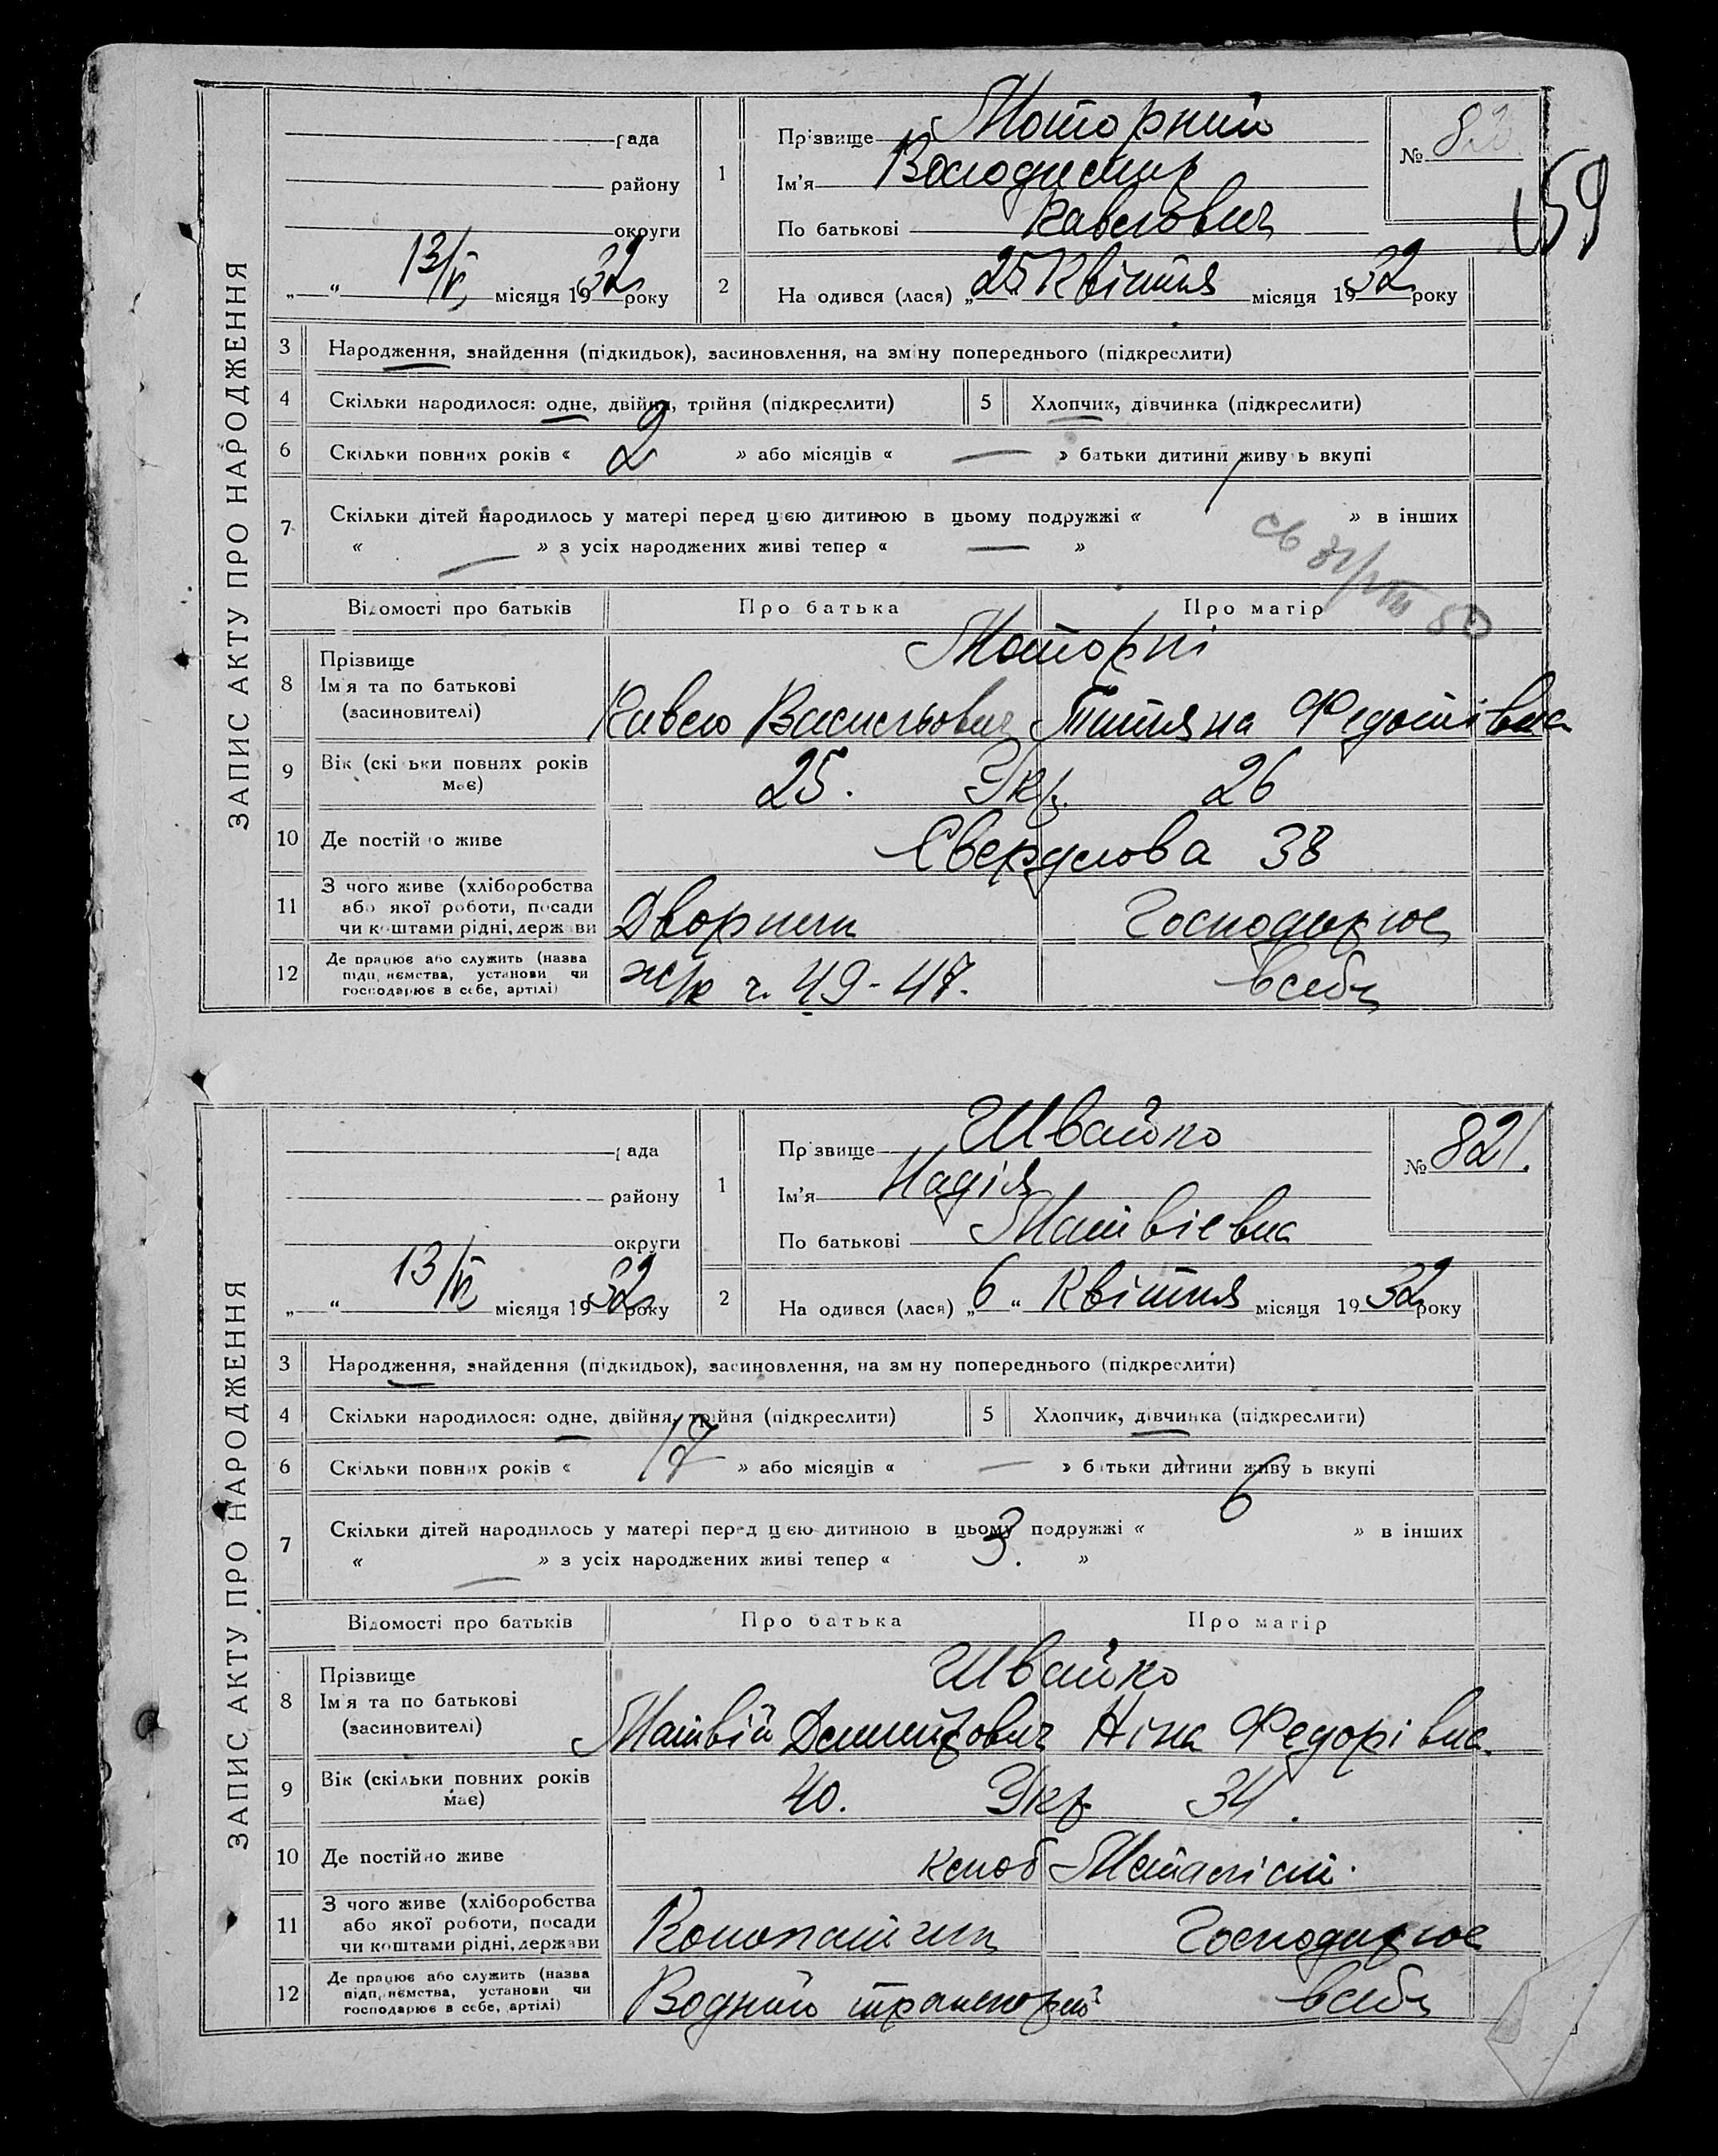 ЗАПИС АКТУ ПРО НАРОДЖЕННЯ
рада
району
округи
13/VI місяця 1932 року
1
Прізвище Моторний
Ім'я Володимир
По батькові Павелович
№ 820
59
2
На одився (лася) „25 Квітня місяця 1932 року
3 Народження, знайдення (підкидьок), засиновлення, на зміну попереднього (підкреслити)
4 Скільки народилося: одне, двійня, трійня (підкреслити)
5 Хлопчик, дівчинка (підкреслити)
6 Скільки повних років « 2 » або місяців « — » батьки дитини живу ь вкупі
7 Скільки дітей народилось у матері перед цією дитиною в цьому подружжі « 1 » в інших
« — » з усіх народжених живі тепер « — »
св 31/VIII 50
Відомості про батьків Про батька Про матір
8 Прізвище
Ім'я та по батькові
(засиновителі)
Моторні
Павело Васильович Титяна Федотівна
9 Вік (скі ьки повних років має) 25. Укр. 26
10 Де постій о живе Свердлова 38
11 З чого живе (хліборобства
або якої роботи, посади
чи коштами рідні, держави
Дворник Господарює
12 Де працює або служить (назва
підприємства, установи чи
господарює в себе, артілі)
ж/к ч. 49-47. в себе
ЗАПИС АКТУ ПРО НАРОДЖЕННЯ
рада
району
округи
13/VI місяця 1932 року
1
Прізвище Швайко
Ім'я Надія
По батькові Матвіевна
№ 821.
2
На одився (лася) „6“ Квітня місяця 1932 року
3 Народження, знайдення (підкидьок), засиновлення, на зм ну попереднього (підкреслити)
4 Скільки народилося: одне, двійня, трійня (підкреслити)
5 Хлопчик, дівчинка (підкреслити)
6 Скільки повних років « 17 » або місяців « — » батьки дитини живу ь вкупі
7 Скільки дітей народилось у матері перед цією дитиною в цьому подружжі « 6 » в інших
« — » з усіх народжених живі тепер « 3. »
Відомості про батьків Про батька Про матір
8 Прізвище
Ім'я та по батькові
(засиновителі)
Швайко
Матвій Демидович Ніна Федорівна
9 Вік (скільки повних років має) 40. Укр. 34.
10 Де постійно живе Металіст.
11 З чого живе (хліборобства
або якої роботи, посади
чи коштами рідні, держави
Конопатчик Господарює
12 Де працює або служить (назва
підприємства, установи чи
господарює в себе, артілі)
Водний транспорт в себе